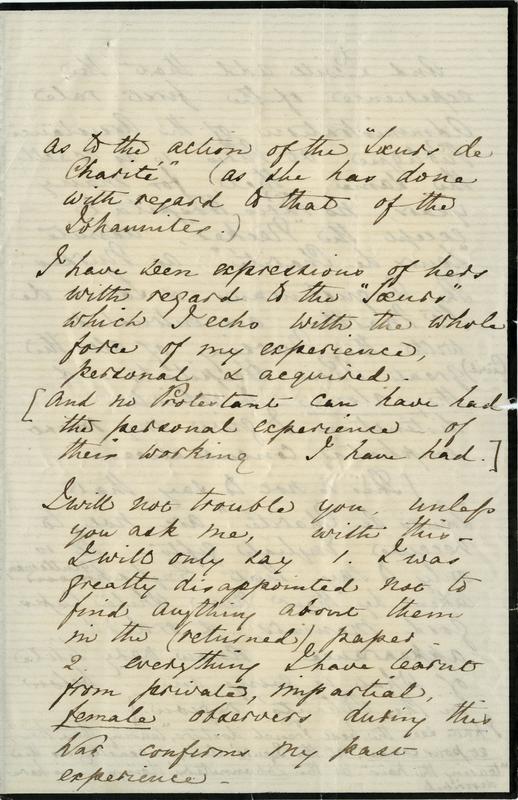 as to the action of the "Soeurs de
Charité" (as she has done
with regard to that of the
Johannites.)
I have seen expressions of hers
with regard to the "Soeurs"
which I echo with the whole
force of my experience,
personal & acquired.
[And no Protestant can have had
the personal experience of
their working I have had.]
I will not trouble you, unless
you ask me, with this_
I will only say 1. I was
greatly disappointed not to
find anything about them
in the (returned) paper
2. everything I have learnt
from private, impartial,
female observers during this
War confirms my past
experience_